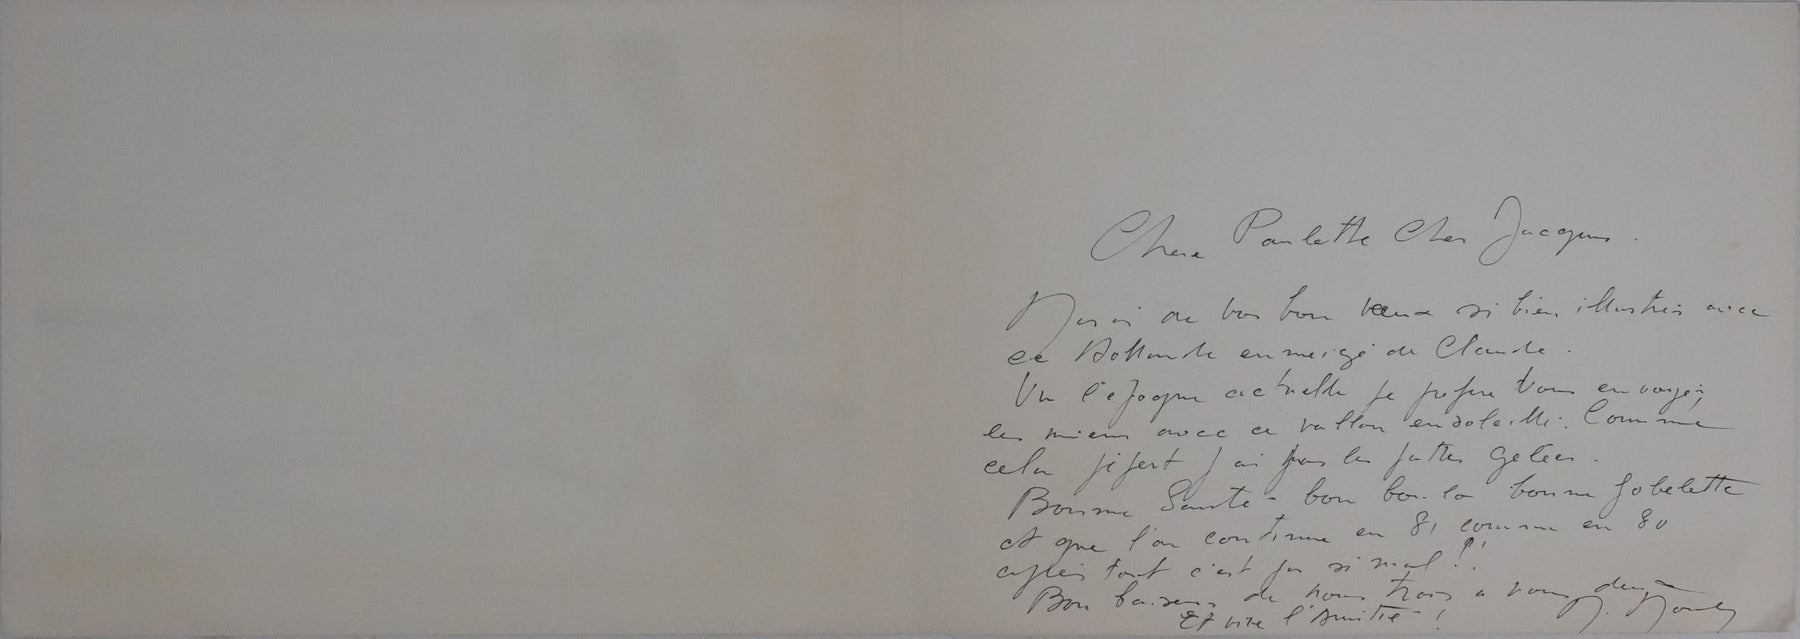 Chere Paulette Cher Jacques.
Merci de vos bons vœux si bien illustrés avec
ce Hollande enneigé de Claude.
Vu l'époque actuelle je préfère vous envoyer
les miens avec ce vallon ensoleillé. Comme
cela j'ai pas les pattes gelées.
Bonne Santé - bon boulo bonne gobelette
et que l'on continue en 81 comme en 80
après tout c'est pas si mal !!
Bon baisers de nous trois a vous deux
Et vive l'Amitié !